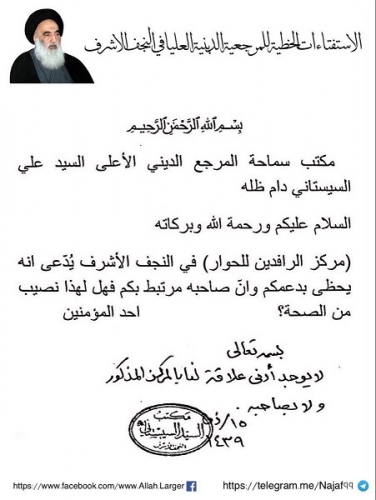 الاستفتاءات الخطية للمرجعية الدينية العليا في النجف الاشرف
بسم الله الرحمن الرحيم
مكتب سماحة المرجع الديني الأعلى السيد علي
السيستاني دام ظله
السلام عليكم ورحمة الله وبركاته
(مركز الرافدين للحوار) في النجف الأشرف يُدّعى انه
يحظى بدعمكم وانّ صاحبه مرتبط بكم فهل لهذا نصيب
من الصحة؟ احد المؤمنين
بسمه تعالى
لا يوجد أدنى علاقة لنا بالمركز المذكور
ولا بصاحبه
١٥/
١٤٣٩
مكتب
السيد السيستاني
https://www.facebook.com/www.Allah.Larger
https://telegram.me/Najaf٩٩